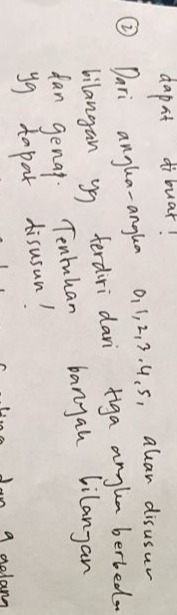 dapat dibuat!
② Dari angka-angka 0,1,2,3,4,5, akan disusun
bilangan yg terdiri dari tiga angka berbeda
dan genap. Tentukan banyak bilangan
yg dapat disusun!
dan 9 gelang